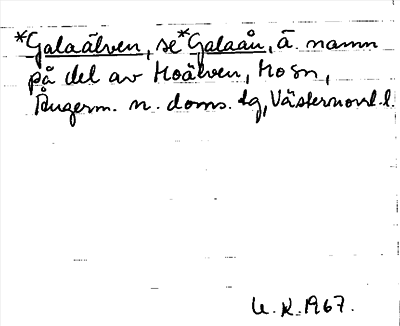 *Galaälven, se *Galaån, ä. namn
på del av Moälven, Mosn,
Ångerm. n. doms. tg, Västernorrl. l.
U. K. 1967.